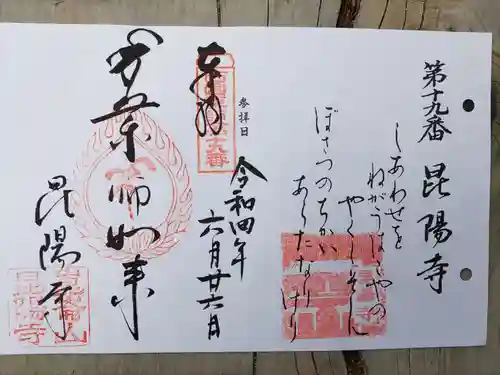 第十九番 昆陽寺
しあわせを
ねがうはこやの
やくしそん
ぼさつのちかい
あらたなりけり
参拝日
令和四年
六月廿六日
奉拝
薬師如来
昆陽寺
昆陽寺